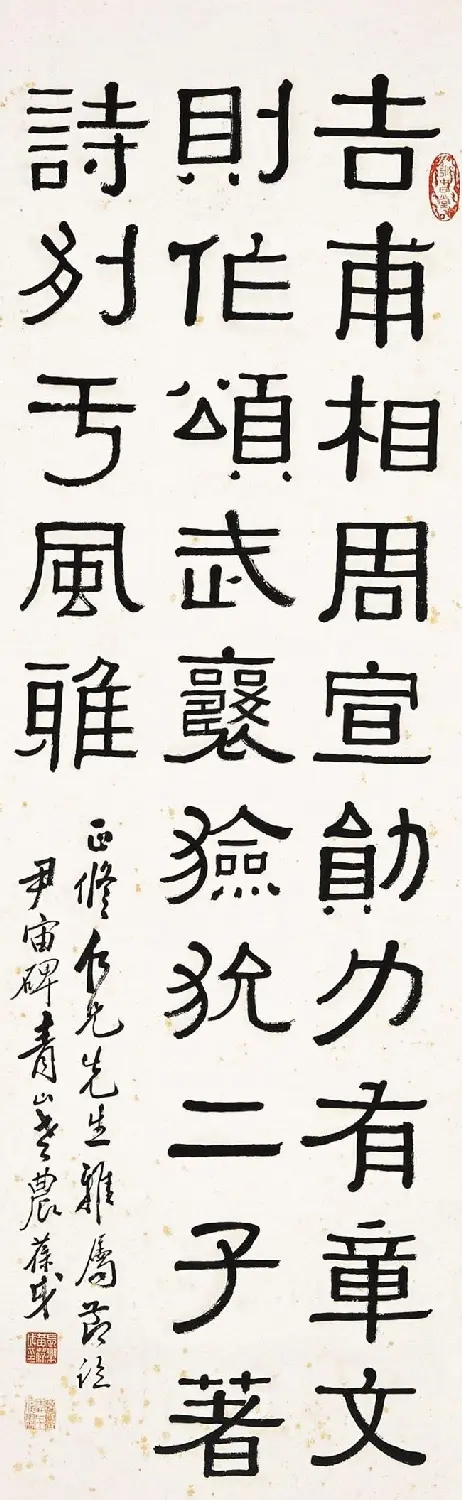 吉甫相周宣勛力有章文
則作頌武襄獫狁二子著
詩列于風雅
正脩仁兄先生雅屬節臨
尹宙碑青山老農葆戉